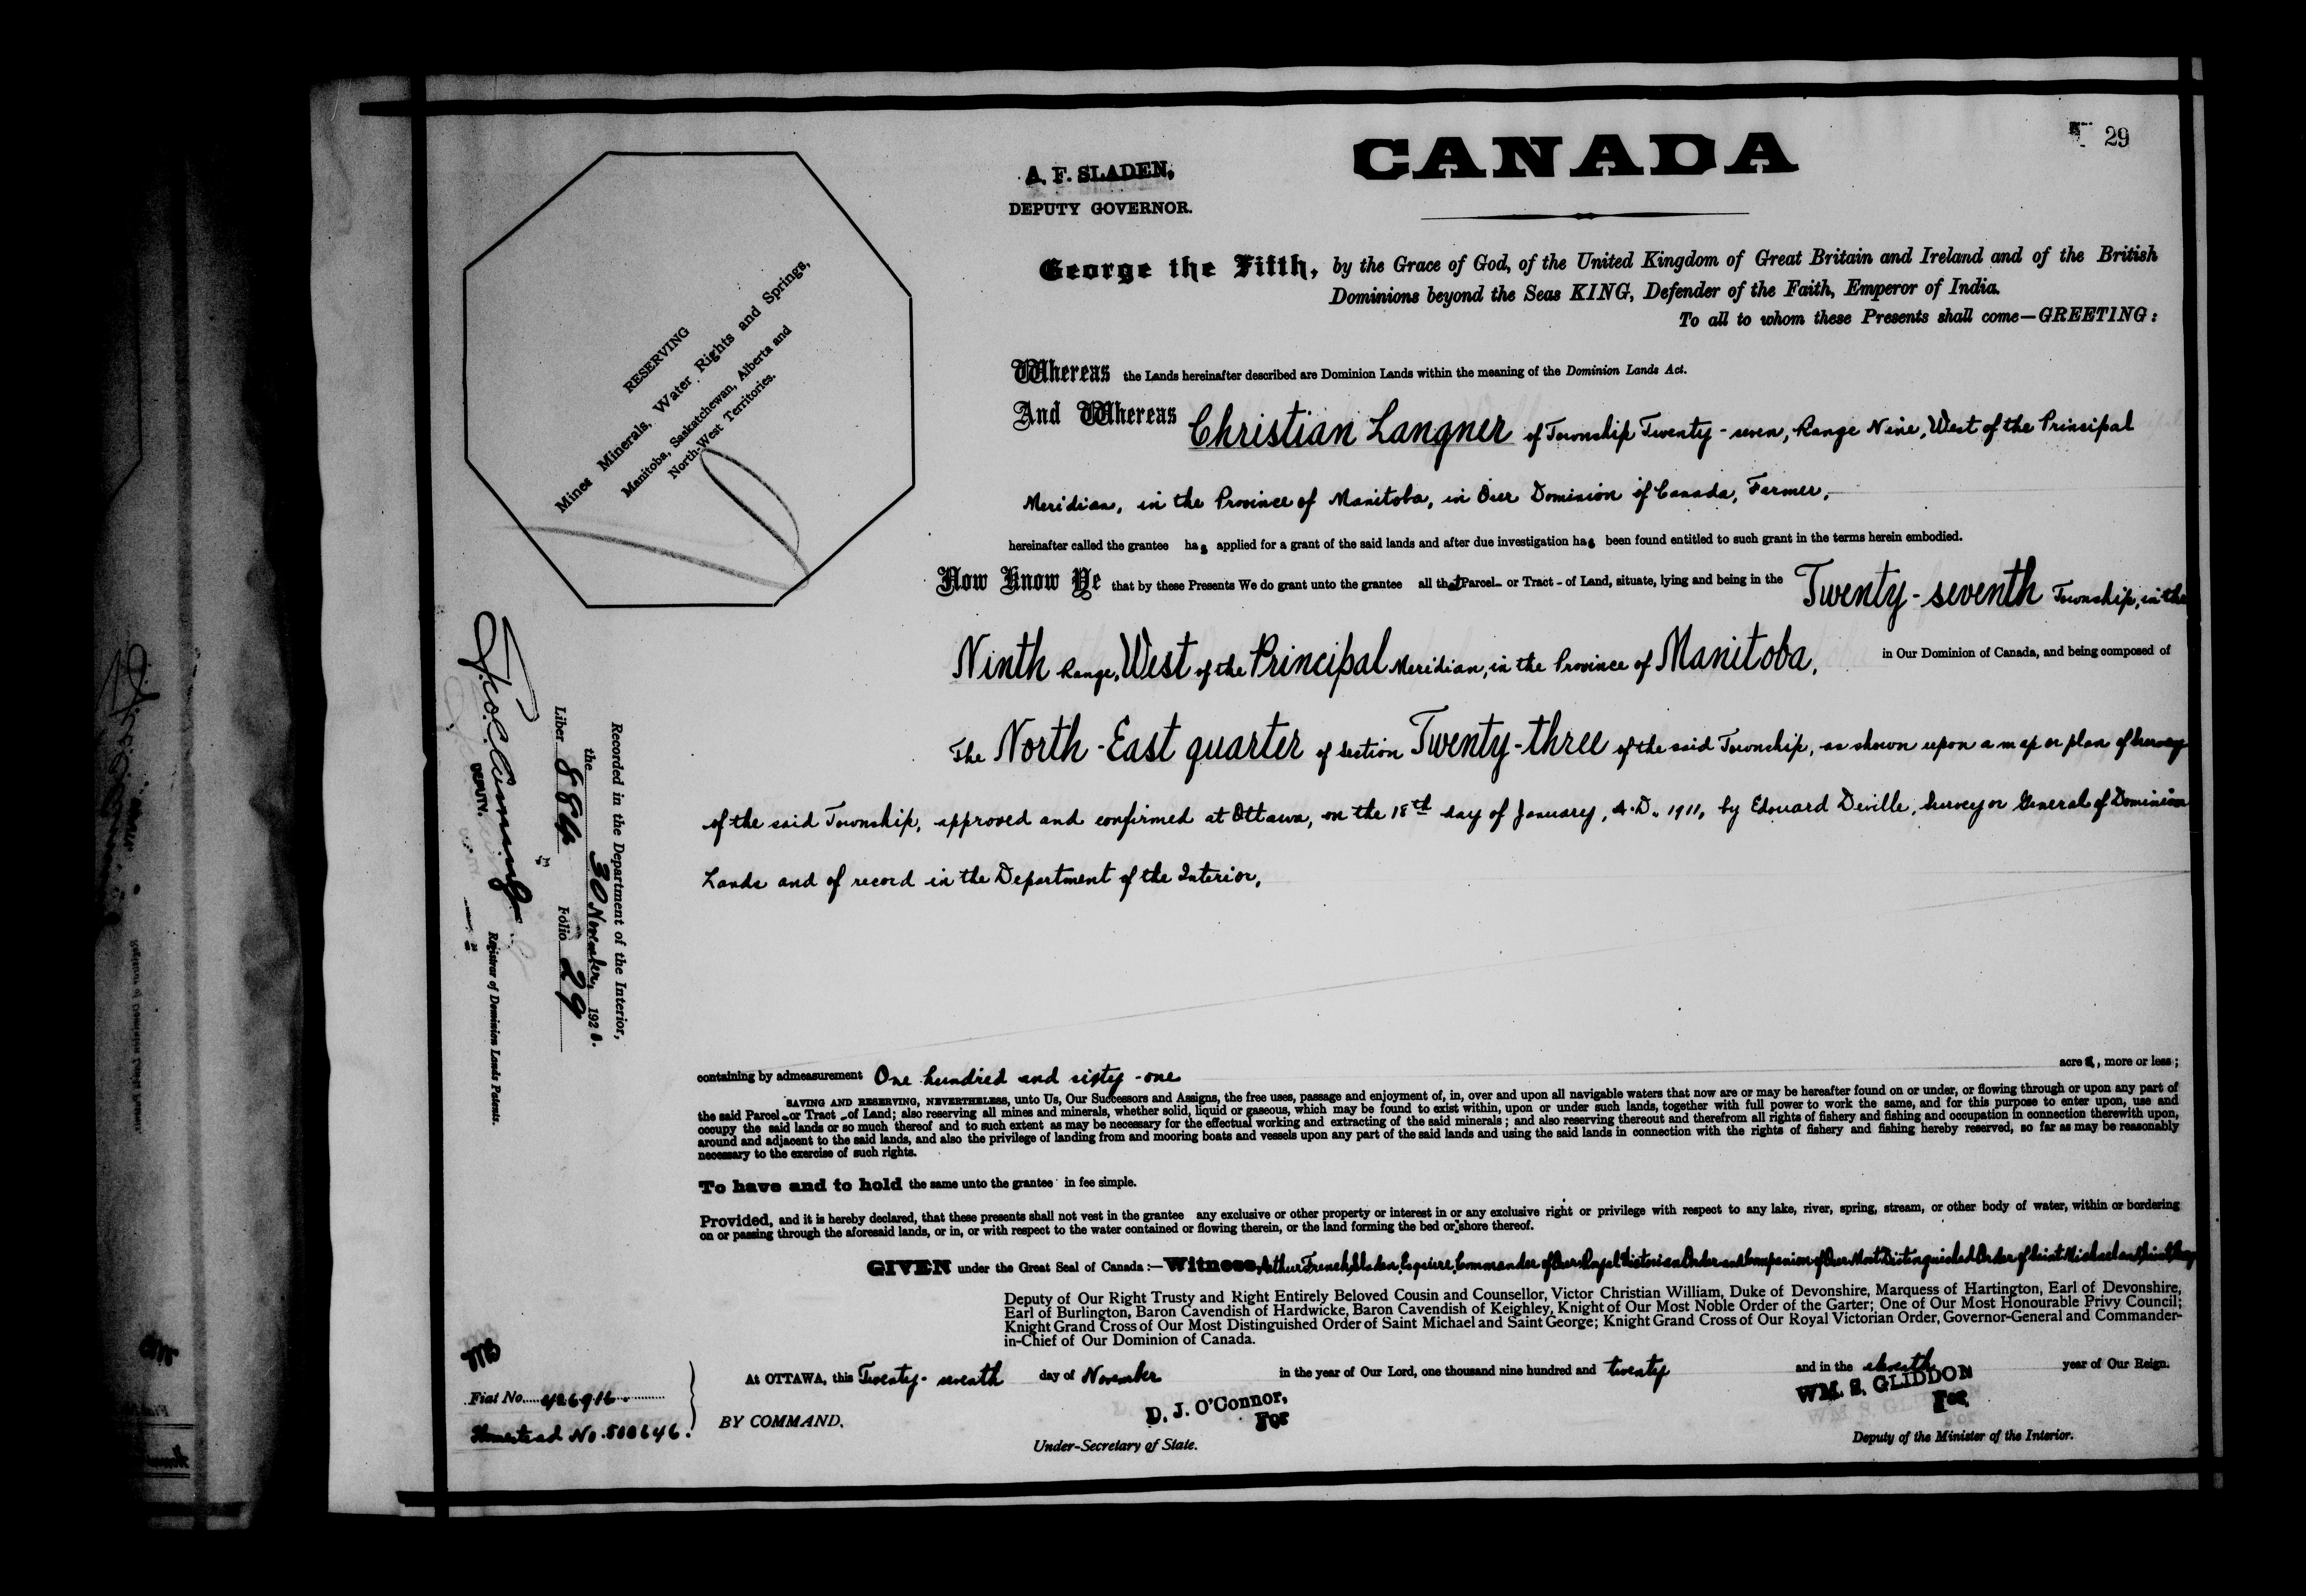 29
CANADA
A. F. SLADEN,
DEPUTY GOVERNOR.
George the Fifth, by the Grace of God, of the United Kingdom of Great Britain and Ireland and of the British
Dominions beyond the Seas KING, Defender of the Faith, Emperor of India.
To all to whom these Presents shall come—GREETING:
RESERVING
Mines Minerals, Water Rights and Springs,
Manitoba, Saskatchewan, Alberta and
North-West Territories.
Whereas the Lands hereinafter described are Dominion Lands within the meaning of the Dominion Lands Act.
And Whereas Christian Langner of Township Twenty-seven, Range Nine, West of the Principal
Meridian, in the Province of Manitoba, in Our Dominion of Canada, Farmer,
hereinafter called the grantee has applied for a grant of the said lands and after due investigation has been found entitled to such grant in the terms herein embodied.
Now Know Ye that by these Presents We do grant unto the grantee all that Parcel or Tract of Land, situate, lying and being in the Twenty-seventh Township, in the
Ninth Range, West of the Principal Meridian, in the Province of Manitoba, in Our Dominion of Canada, and being composed of
The North-East quarter of Section Twenty-three of the said Township, as shown upon a map or plan of survey
of the said Township, approved and confirmed at Ottawa, on the 18th day of January, A.D. 1911, by Edouard Deville, Surveyor General of Dominion
Lands and of record in the Department of the Interior,
Recorded in the Department of the Interior,
the 30 November, 1920.
Liber 884 Folio 29
DEPUTY.
Registrar of Dominion Lands Patents.
containing by admeasurement One hundred and sixty-one acres, more or less;
SAVING AND RESERVING, NEVERTHELESS, unto Us, Our Successors and Assigns, the free uses, passage and enjoyment of, in, over and upon all navigable waters that now are or may be hereafter found on or under, or flowing through or upon any part of
the said Parcel or Tract of Land; also reserving all mines and minerals, whether solid, liquid or gaseous, which may be found to exist within, upon or under such lands, together with full power to work the same, and for this purpose to enter upon, use and
occupy the said lands or so much thereof and to such extent as may be necessary for the effectual working and extracting of the said minerals; and also reserving thereout and therefrom all rights of fishery and fishing and occupation in connection therewith upon,
around and adjacent to the said lands, and also the privilege of landing from and mooring boats and vessels upon any part of the said lands and using the said lands in connection with the rights of fishery and fishing hereby reserved, so far as may be reasonably
necessary to the exercise of such rights.
To have and to hold the same unto the grantee in fee simple.
Provided, and it is hereby declared, that these presents shall not vest in the grantee any exclusive or other property or interest in or any exclusive right or privilege with respect to any lake, river, spring, stream, or other body of water, within or bordering
on or passing through the aforesaid lands, or in, or with respect to the water contained or flowing therein, or the land forming the bed or shore thereof.
GIVEN under the Great Seal of Canada:—Witness, Arthur French Sladen, Esquire, Commander of Our Royal Victorian Order and Companion of Our Most Distinguished Order of Saint Michael and Saint George
Deputy of Our Right Trusty and Right Entirely Beloved Cousin and Counsellor, Victor Christian William, Duke of Devonshire, Marquess of Hartington, Earl of Devonshire,
Earl of Burlington, Baron Cavendish of Hardwicke, Baron Cavendish of Keighley, Knight of Our Most Noble Order of the Garter; One of Our Most Honourable Privy Council;
Knight Grand Cross of Our Most Distinguished Order of Saint Michael and Saint George; Knight Grand Cross of Our Royal Victorian Order, Governor-General and Commander-
in-Chief of Our Dominion of Canada.
At OTTAWA, this Twenty-seventh day of November in the year of Our Lord, one thousand nine hundred and twenty and in the eleventh year of Our Reign.
Fiat No. 426916.
Homestead No. 508646.
BY COMMAND,
D. J. O'Connor,
For
Under-Secretary of State.
WM. S. GLIDDON
For
Deputy of the Minister of the Interior.